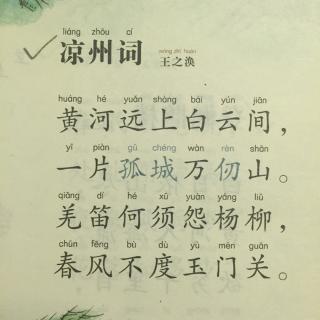 liáng zhōu cí
凉州词
wáng zhī huàn
王之涣
huáng hé yuǎn shàng bái yún jiān
黄河远上白云间，
yī piàn gū chéng wàn rèn shān
一片孤城万仞山。
qiāng dí hé xū yuàn yáng liǔ
羌笛何须怨杨柳，
chūn fēng bù dù yù mén guān
春风不度玉门关。